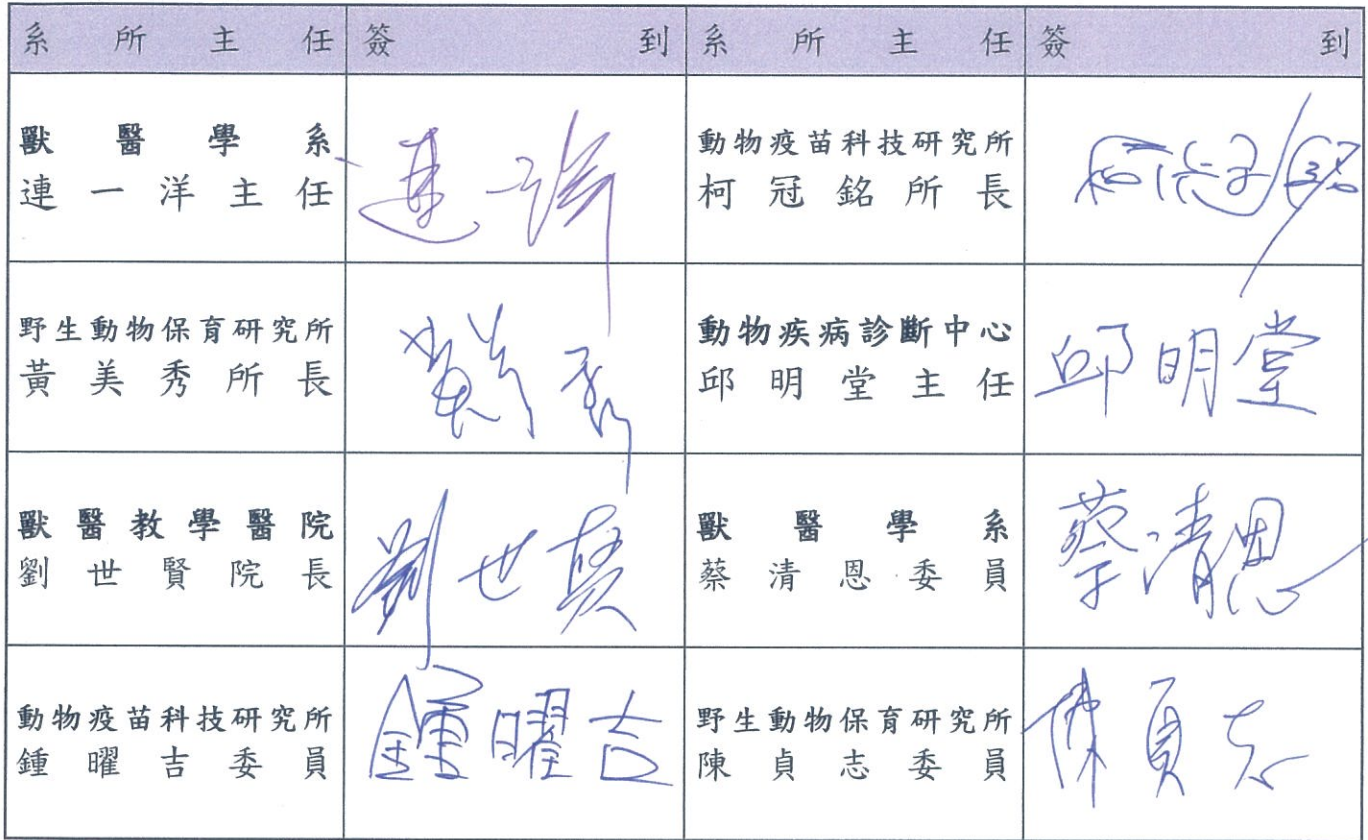 系所主任 簽到 系所主任 簽到
獸醫學系
連一洋主任
連一洋
動物疫苗科技研究所
柯冠銘所長
柯冠銘
野生動物保育研究所
黃美秀所長
黃美秀
動物疾病診斷中心
邱明堂主任
邱明堂
獸醫教學醫院
劉世賢院長
劉世賢
獸醫學系
蔡清恩委員
蔡清恩
動物疫苗科技研究所
鍾曜吉委員
鍾曜吉
野生動物保育研究所
陳貞志委員
陳貞志